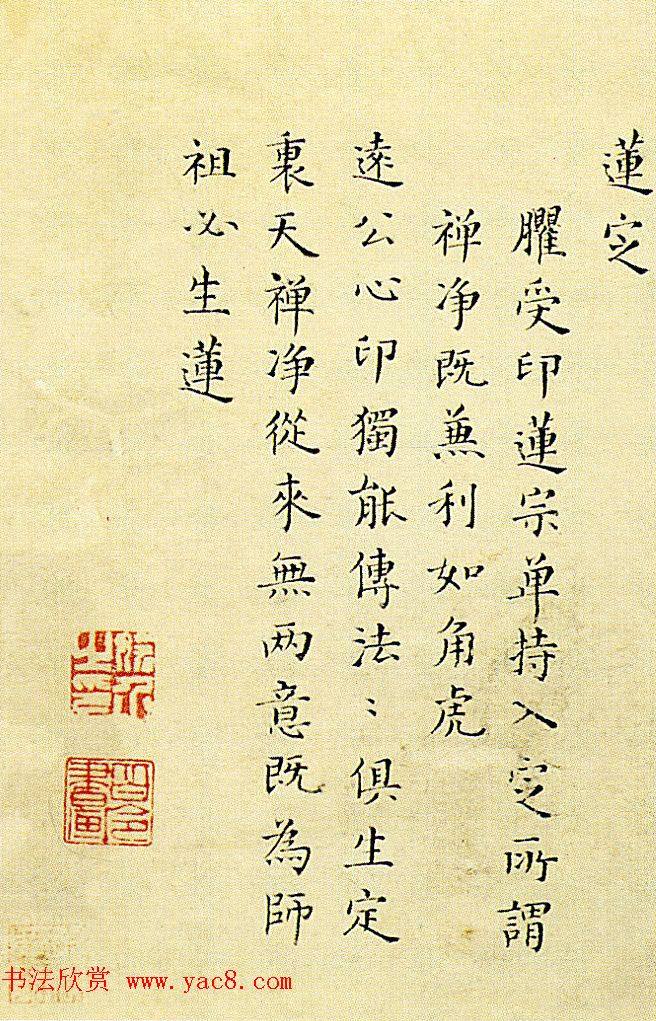 蓮㝎
臞受印蓮宗单持入㝎所謂
禅净既兼利如角虎
遠公心印獨能傳法〻俱生定
裏天禅净從來無两意既為師
祖必生蓮
书法欣赏 www.yac8.com